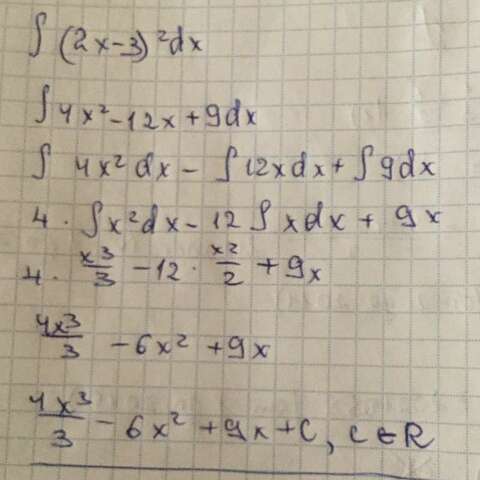 ∫(2x-3)²dx
∫4x²-12x+9dx
∫ 4x²dx - ∫12xdx + ∫9dx
4 · ∫x²dx - 12∫xdx + 9x
4 · x³/3 - 12 · x²/2 + 9x
4x³/3 - 6x² + 9x
4x³/3 - 6x² + 9x + C, C ∈ R